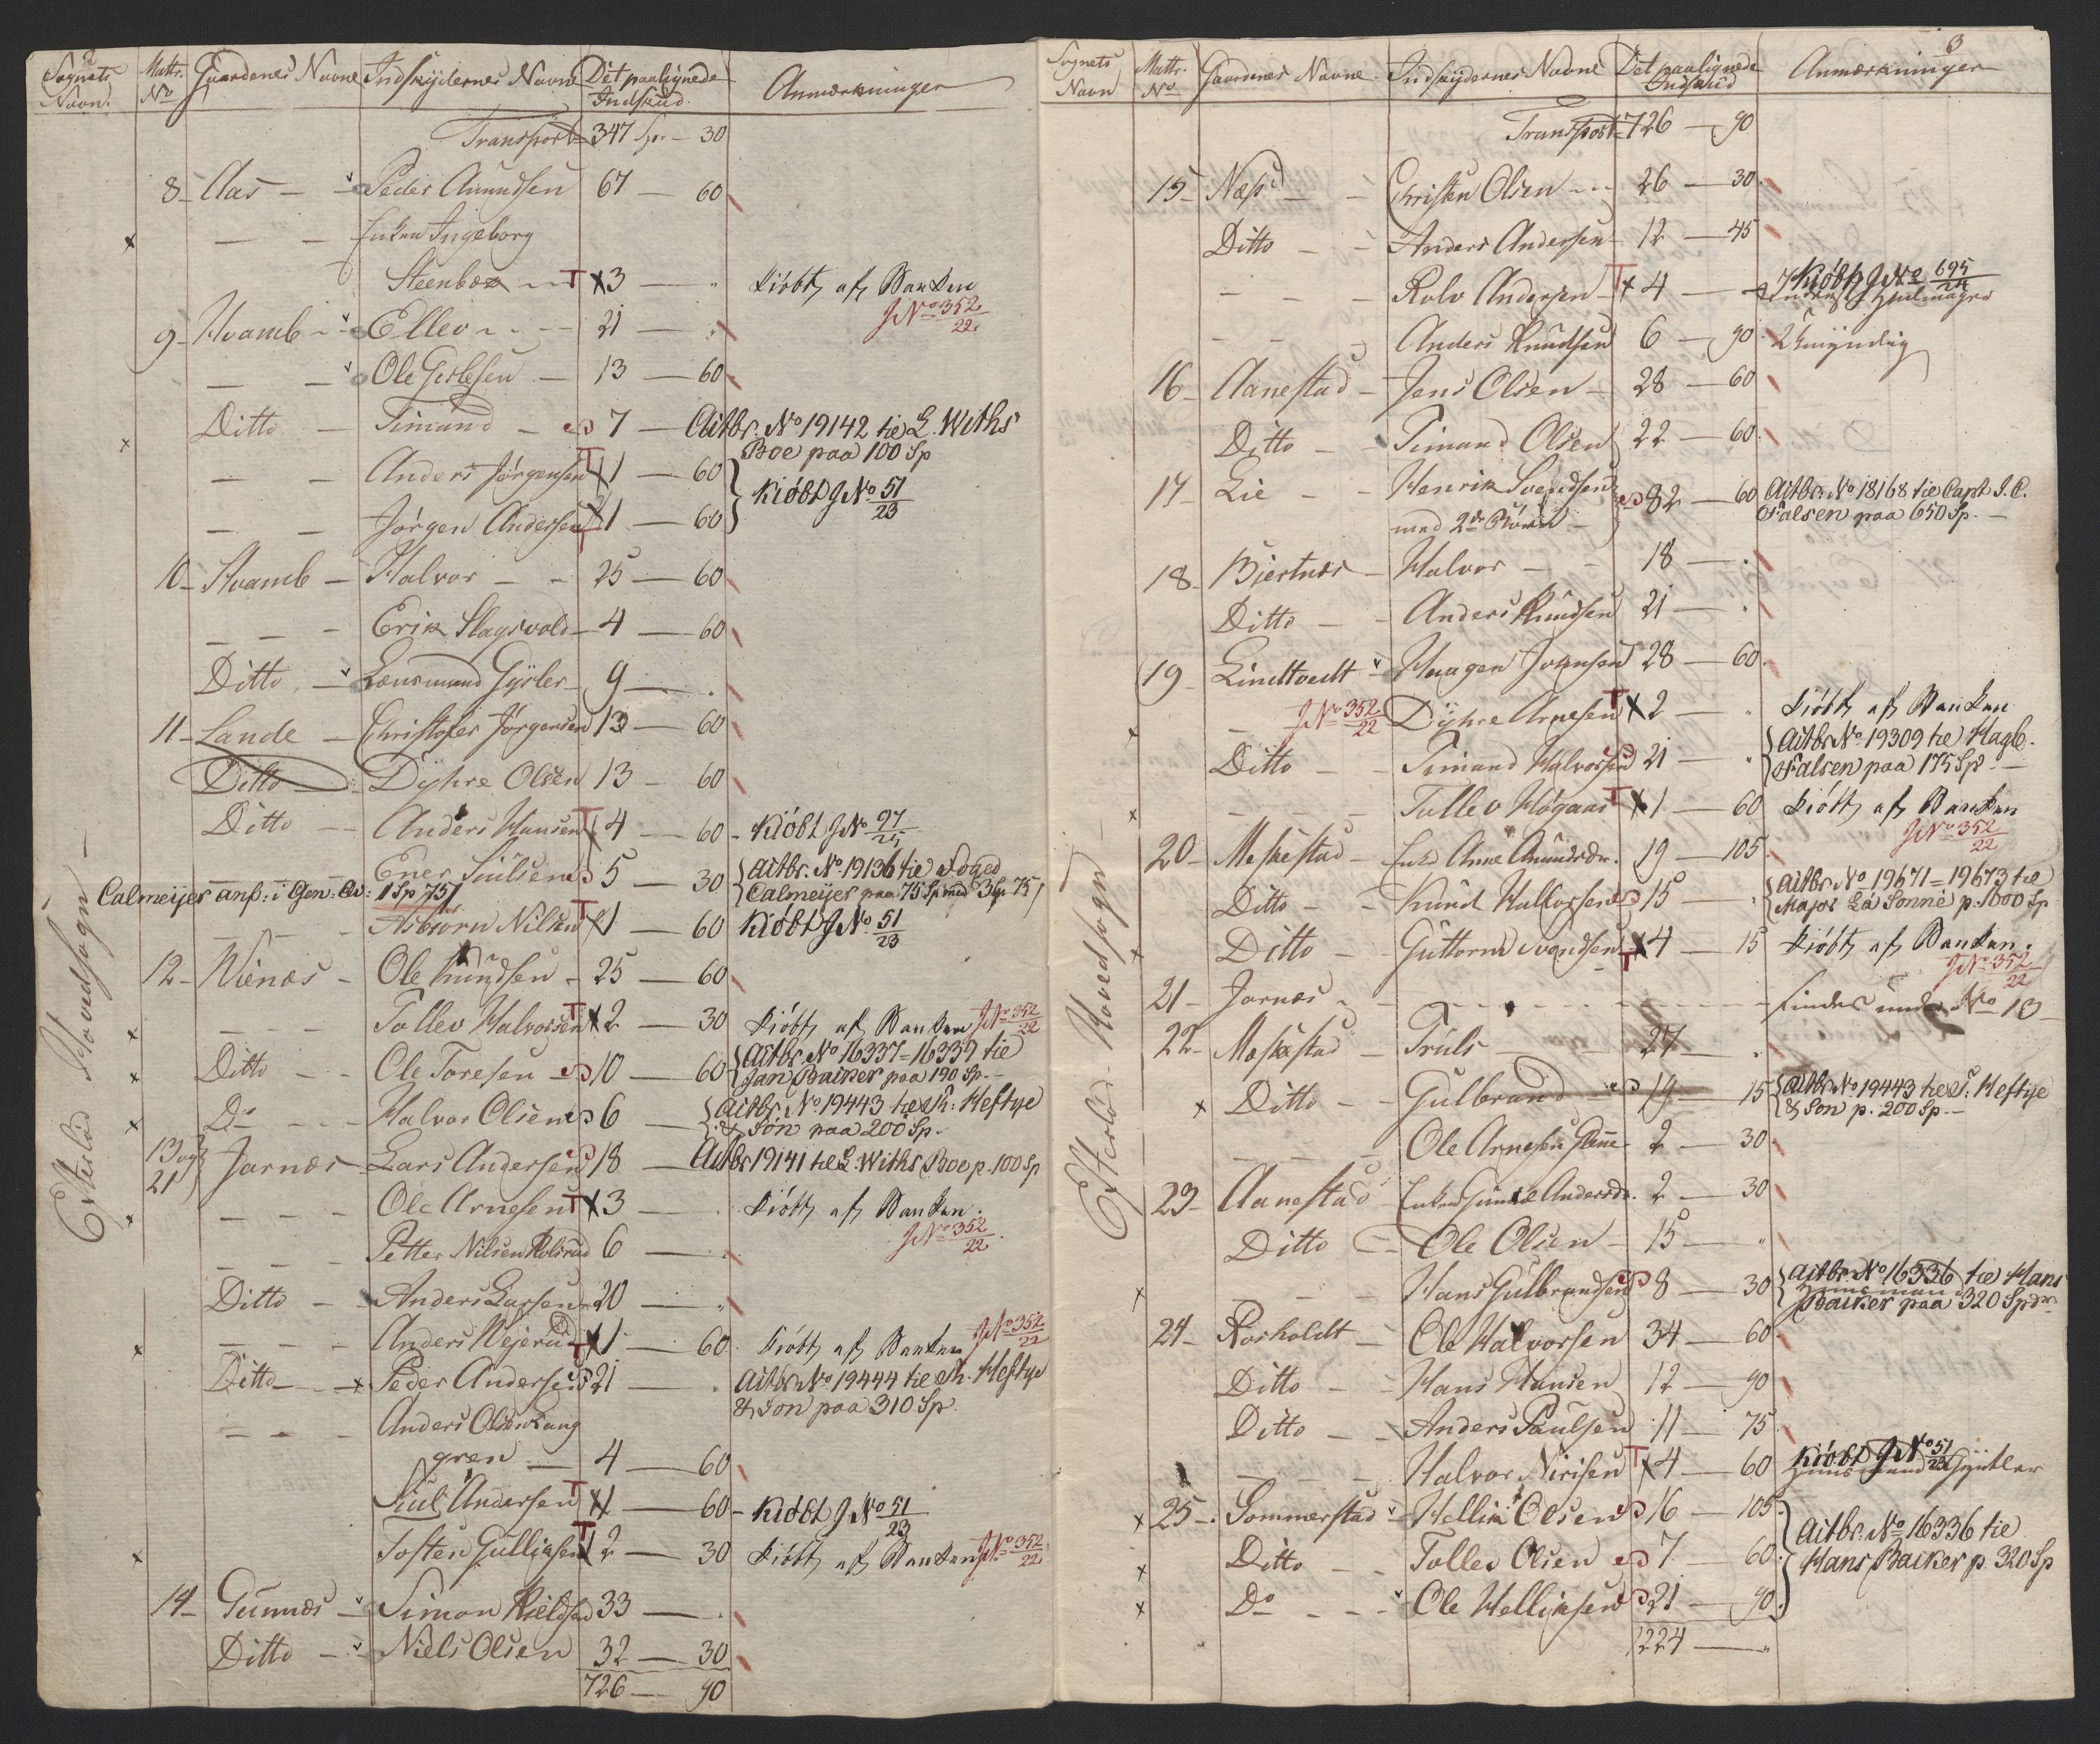 2
Sognets Navn. Mattr. No Gaardenes Navne Indskydernes Navne Det paalignede Indskud. Anmærkninger
Transport 347 Sp. - 30
8 - Aas - - Peder Amundsen 67 - 60
x - - Enken Ingeborg
Steenbæk - T x 3 - " kiøbt af Banken
JNo 352/22
9 - Hvamb - - Ellev - - - 21 - "
- - Ole Gislesen - 13 - 60
x Ditto - Timand - 7 - Actbr. No 19142 til L. Withs
Boe paa 100 Sp
- - Anders Jørgensen T x 1 - 60 }
Kiøbt JNo 51/23
- - Jørgen Andersen T x 1 - 60 }
10 - Hvamb - Halvor - - 25 - 60
- - - Erik Slagsvold - 4 - 60
Ditto - Lensmand Gysler - 9 - "
11 - Lande - Christofer Jørgensen 13 - 60
Ditto - Dyhre Olsen 13 - 60
Ditto - - Anders Hansen T x 4 - 60 - Kiøbt JNo 97/25
- - - Ener Siulsen 5 - 30 { Actbr. No 19136 til Foged
Calmeijer paa 75 Sp med 3 Sp 75 /
Calmeijer anf: i Gen: Qv: 1 Sp 75 /
- - - Asbiorn Nilsen T x 1 - 60 Kiøbt JNo 51/23
12 - Wienæs - Ole Knudsen - 25 - 60
x - - - Tollev Halvorsen T x 2 - 30 kiøbt af Banken JNo 352/22
x Ditto - - Ole Toresen - 10 - 60 { Actbr. No 16337 = 16339 til
Jan Backer paa 190 Sp. -
x Do - - - Halvor Olsen 6 - { Actbr. No 19443 til Th: Heftye
& Søn paa 200 Sp. -
13 og 21 } Jarnæs - Lars Andersen 18 - Actbr 19141 til L. Withs Boe p. 100 Sp
x - - - Ole Arnesen T x 3 - kiøbt af Banken.
JNo 352/22
- - - Petter Nilsen Holsrud 6 - "
Ditto - - Anders Larsen - 20 - "
x - - - Anders Nejerud T x 1 - 60 kiøbt af Banken JNo 352/22
Ditto - - x Peder Andersen 21 - " Actbr. No 19444 til Th. Heftye
& Søn paa 310 Sp
- - - Anders Olsen Lang
gren - 4 - 60
Siul Andersen T x 1 - 60 - Kiøbt JNo 51/23
x Tosten Gulliksen T 2 - 30 kiøbt af Banken JNo 352/22
14 - Gunnæs - Simon Kieldsen 33 - "
Ditto - - Niels Olsen 32 - 30
726 - 90
Efterløs Hovedsogn -
3
Sognets Navn Mattr. No Gaardenes Navne Indskydernes Navne Det paalignede Indskud Anmærkninger
Transport 726 - 90
15 - Næss - - Christen Olsen - - 26 - 30
Ditto - - Anders Andersen - 12 - 45
- - - Rolv Andersen T x 4 - Kiøbt JNo 695/24
- - - Anders Knudsen 6 - 90 Umyndig
16 - Aanestad - Jens Olsen - 28 - 60
Ditto - - Timand Olsen 22 - 60
17 - Lie - - Henrik Svendsen
med 2de Brødre - } 82 - 60 Actbr. No 18168 til Capt I. C.
Falsen paa 650 Sp. -
18 - Biertnæs - Halvor - - 18 - "
Ditto - - Anders Knudsen 21 - "
19 - Lindtvedt - Haagen Johnsen 28 - 60
x JNo 352/22 Dyhre Arnesen T x 2 - " kiøbt af Banken
Ditto - - Timand Halvorsen 21 - " { Actbr. No 19309 til Hagb.
Falsen paa 175 Sp -
x - - - Tollev Høgaas T x 1 - 60 kiøbt af Banken
JNo 352/22
20 - Meskestad - Enke Anne Amundsdr. 19 - 105
Ditto - - Knud Halvorsen 15 - " { Actbr No 19671 = 19673 til
Major La Sonne p. 1000 Sp
x Ditto - - Guttorm Svendsen T x 4 - 15 kiøbt af Banken.
JNo 352/22
21 - Jarnæs - - - - - - - - findes under No 13
22 - Meskestad - Truls - 27 - "
x Ditto - - Gulbrand - 19 - 15 { Actbr. No 19443 til T. Heftye
& Søn p. 200 Sp. -
- - - Ole Arnesen 2 - 30
23 - Aanestad - Enken Gunild Andersdr. 2 - 30
Ditto - - Ole Olsen - 15 - "
x - - - Hans Gulbrandsen 8 - 30 { Actbr. No 16336 til Hans
Backer paa 320 Spdr
24 - Rosholdt - Ole Halvorsen 34 - 60
Ditto - - Hans Hansen 12 - 90
Ditto - - Anders Paulsen 11 - 75
- - - Halvor Nirisen T x 4 - 60 Kiøbt JNo 51/23
x 25 - Sommerstad - Hellik Olsen 16 - 105 }
x Ditto - - Tollev Olsen 7 - 60 } Actbr. No 16336 til
Hans Backer p. 320 Sp
x Do - - - Ole Helliksen 21 - 90 }
1224 - "
Efterløs Hovedsogn -